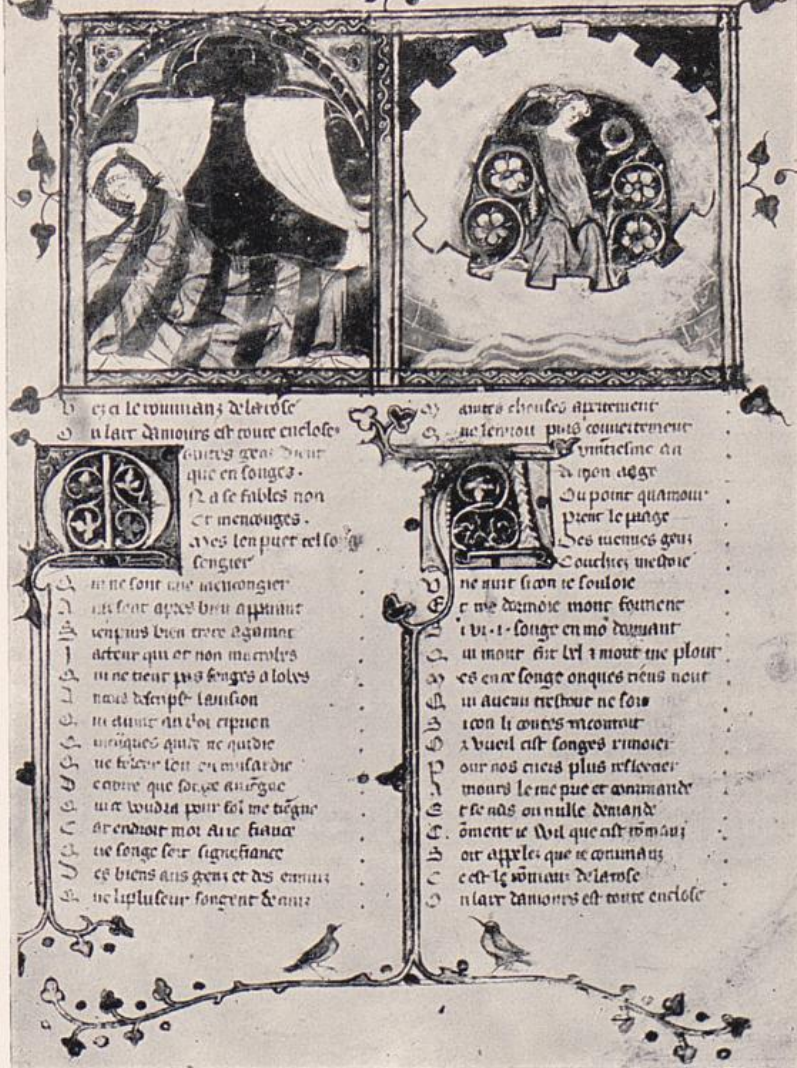 ez ci le roumanz de la rose
O u lart damours est toute enclose
M aintes genz dient
que en songes
N a se fables non
Et mencoges
Mes len puet tel songe
songier
Q ui ne sont mie mencongier
A ins sont apres bien apparant
S i en puis bien trere a garant
I acteur qui ot non macrobes
Q ui ne tient pas songes a lobes
A ncois descript la vision
Q ui avint au roi cipion
Q uiconques quide ne qui die
Q ue soit en musardie
D e croire que songe aviegne
Q ui ce voudra pour fol me tiegne
C ar endroit moi ai ie fiance
Q ue songe soit signefiance
D es biens aus genz et des ennuiz
Q ue li pluseur songent de nuiz
M aintes choses
Q ue len voit puis couvertement
A u vintiesme an
de mon aage
Ou point quamour
prent le paage
Des iuenes genz
Couchiez mestoie
V ne nuit si con ie souloie
E t me dormoie mout forment
S i vi .i. songe en mon dormant
Q ui mout fut bel et mout me plout
M es en ce songe onques riens nout
Q ui avenu trestout ne soit
S i con li contes racontoit
O r vueil cist songes rimoier
P our nos cuers plus
A mours le me prie et commande
E t se nus ou nulle demande
C oment ie vueil que cist romanz
S oit appelez que ie commanz
C e est le romanz de la rose
O u lart damours est toute enclose